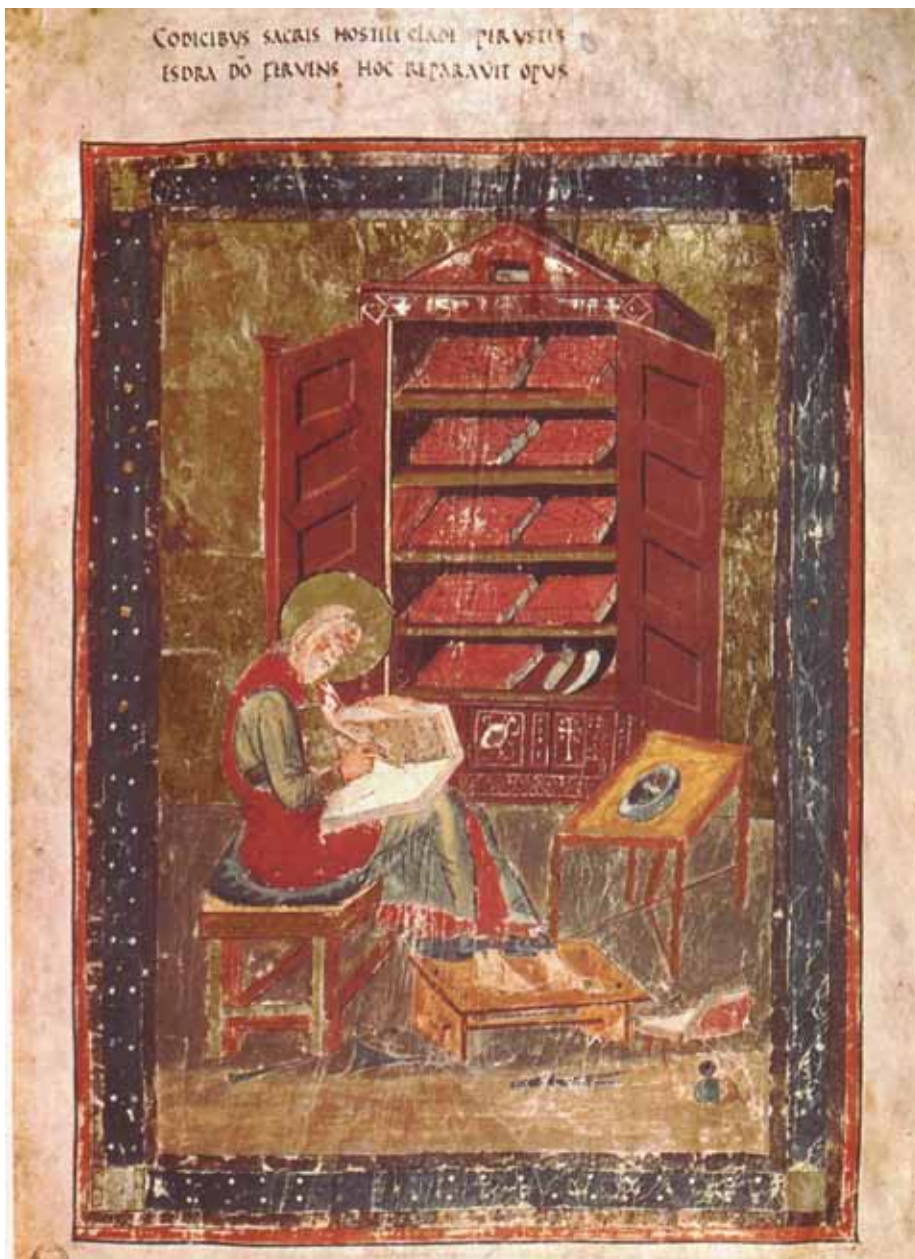 CODICIBVS SACRIS HOSTILI CLADE PERVSTIS
ESDRA DŌ FERVENS HOC REPARAVIT OPUS